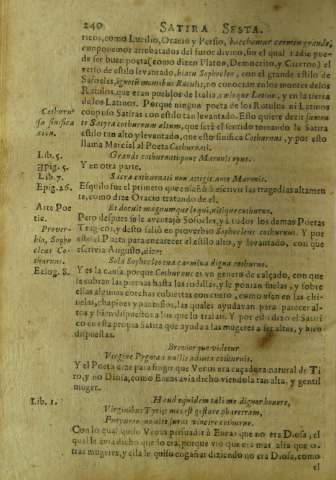 240 SATIRA SESTA.
ricos, como Lucilio, Oracio y Persio, bacchamur carmen grande,
componemos arrebatados del furor divino, sin el qual nadie pue-
de ser buen poeta (como dizen Platon, Democrito, y Ciceron) el
verso de estilo levantado, hiatu Sophocleo, con el grande estilo de
Sofocles, ignotum montibus Rutulis, no conocido en los montes de los
Rutulos, que eran pueblos de Italia, coeloque Latino, y en la tierra
de los Latinos. Porque ningun poeta de los Rotulos ni Latinos
compuso Satiras con estilo tan levantado. Esto quiere dezir
te Satyra cothurnum altum, que será el sentido tomando la Satira
estilo tan alto y levantado, que esto sinifica Cothurnus, y por esto
llama Marcial al Poeta Cothurnati.
Cothurnus
que sinifica
Lib. 5.
Epig. 5.
Grande cothurnati pone Maronis opus.
Lib. 7.
Y en otra parte.
Epig. 26.
Sacra cothurnati non attigit ante Maronis.
Esquilo fue el primero que enseñó à escrivir las tragedias altamen
te, como dize Oracio tratando de el.
Arte Poe
tic.
Et docuit magnumque loqui, nitique cothurno.
Pero despues se le aventajó Sofocles, y à todos los demas Poetas
Prover-
bio, Sopho
cleus Co-
thurnus.
Tragicos, y desto salió en proverbio Sophocleus cothurnus. Y por
esto el Poeta para encarecer el estilo alto, y levantado, con que
escrivia Augusto, dize:
Eclog. 8.
Sola Sophocleo tua carmina digna cothurno.
Y es la causa, porque Cothurnus es un genero de calçado, con que
se cubran las piernas hasta las rodillas, y le ponian suelas, y sobre
ellas algunas cortchas cubiertas con cuero, como usan en las chi-
nelas, chapines y pantuflos, las quales ayudavan para parecer al-
tos y bien dispuestos a los que lo traian. Y por esto dixo el Satiri
co en esta propia Satira que ayuda a las mugeres a ser altas, y bien
dispuestas.
Breviorque videtur
Virgine Pygmaea nullis adiuta cothurnis.
Y el Poeta dize para fingir que Venus era caçadora natural de Ti
ro, y no Diosa, como Eneas avia dicho viendola tan alta, y gentil
muger.
Lib. 1.
Haud equidem tali me dignor honore,
Virginibus Tyriis mos est gestare pharetram,
Purpureoque alte suras vincire cothurno.
Con lo qual quiso Venus persuadir à Eneas que no era Diosa, el
qual le avia dicho que lo era, porque vio que era mas alta que o-
tras mugeres, y ella le quito cogañar diziendo no era Diosa, como
el